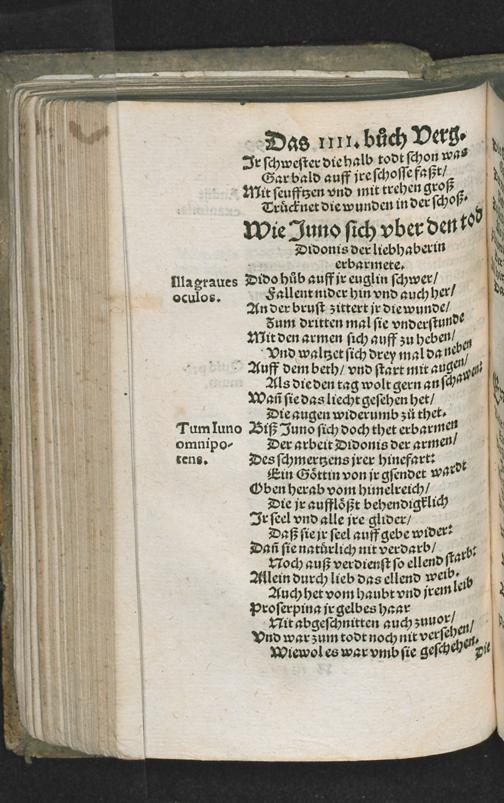 Das IIII. bůch Verg.
Ir schwester die halb todt schon was
Gar bald auff jre schosse faßt/
Mit seufftzen vnd mit trehen groß
Trücknet die wunden in der schoß.
Wie Juno sich vber den tod
Didonis der liebhaberin
erbarmete.
Illa graues
oculos.
Dido hůb auff jr euglin schwer/
Fallent nider hin vnd auch her/
An der brust zittert jr die wunde/
Zum dritten mal sie vnderstunde
Mit den armen sich auff zu heben/
Vnd waltzet sich drey mal da neben
Auff dem beth/ vnd start mit augen/
Als die den tag wolt gern an schawen:
Wañ sie das liecht gesehen het/
Die augen widerumb zů thet.
Tum Iuno
omnipo-
tens.
Biß Juno sich doch thet erbarmen
Der arbeit Didonis der armen/
Des schmertzens jrer hinefart:
Ein Göttin von jr gsendet wardt
Oben herab vom himelreich/
Die jr aufflößt behendigklich
Ir seel vnd alle jre glider/
Daß sie jr seel auff gebe wider:
Dañ sie natürlich nit verdarb/
Noch auß verdienst so ellend starb:
Allein durch lieb das ellend weib.
Auch het vom haubt vnd jrem leib
Proserpina jr gelbes haar
Nit abgeschnitten auch zuuor/
Vnd war zum todt noch nit versehen/
Wiewol es war vmb sie geschehen.
Die